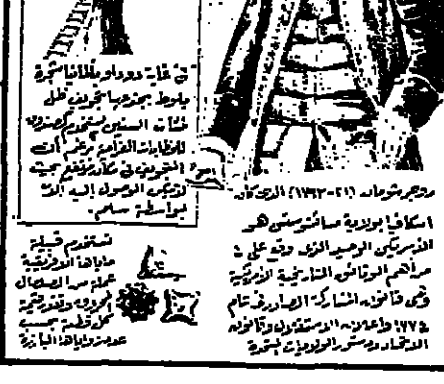 في غابة دوداو بألمانيا شجرة
بلوط بجذعها تجويف ظل
مئات السنين يستخدم كصندوق
للخطابات الغرامية برغم أن
التجويف في مكان مرتفع بحيث
لا يمكن الوصول إليه إلا
بواسطة سلم.
روجر شرمان (١٧٢١-١٧٩٣) الذي كان
اسكافيا بولاية هو
الأمريكي الوحيد الذي وقع على
أهم الوثائق التاريخية الأمريكية
وهي قانون المشاركة الصادر في عام
١٧٧٤ وإعلان الاستقلال وقانون
الاتحاد ودستور الولايات المتحدة
تستخدم قبيلة
عملة من الصلصال
المحروق وتقدر قيمة
كل قطعة بحسب
عدد زواياها البارزة